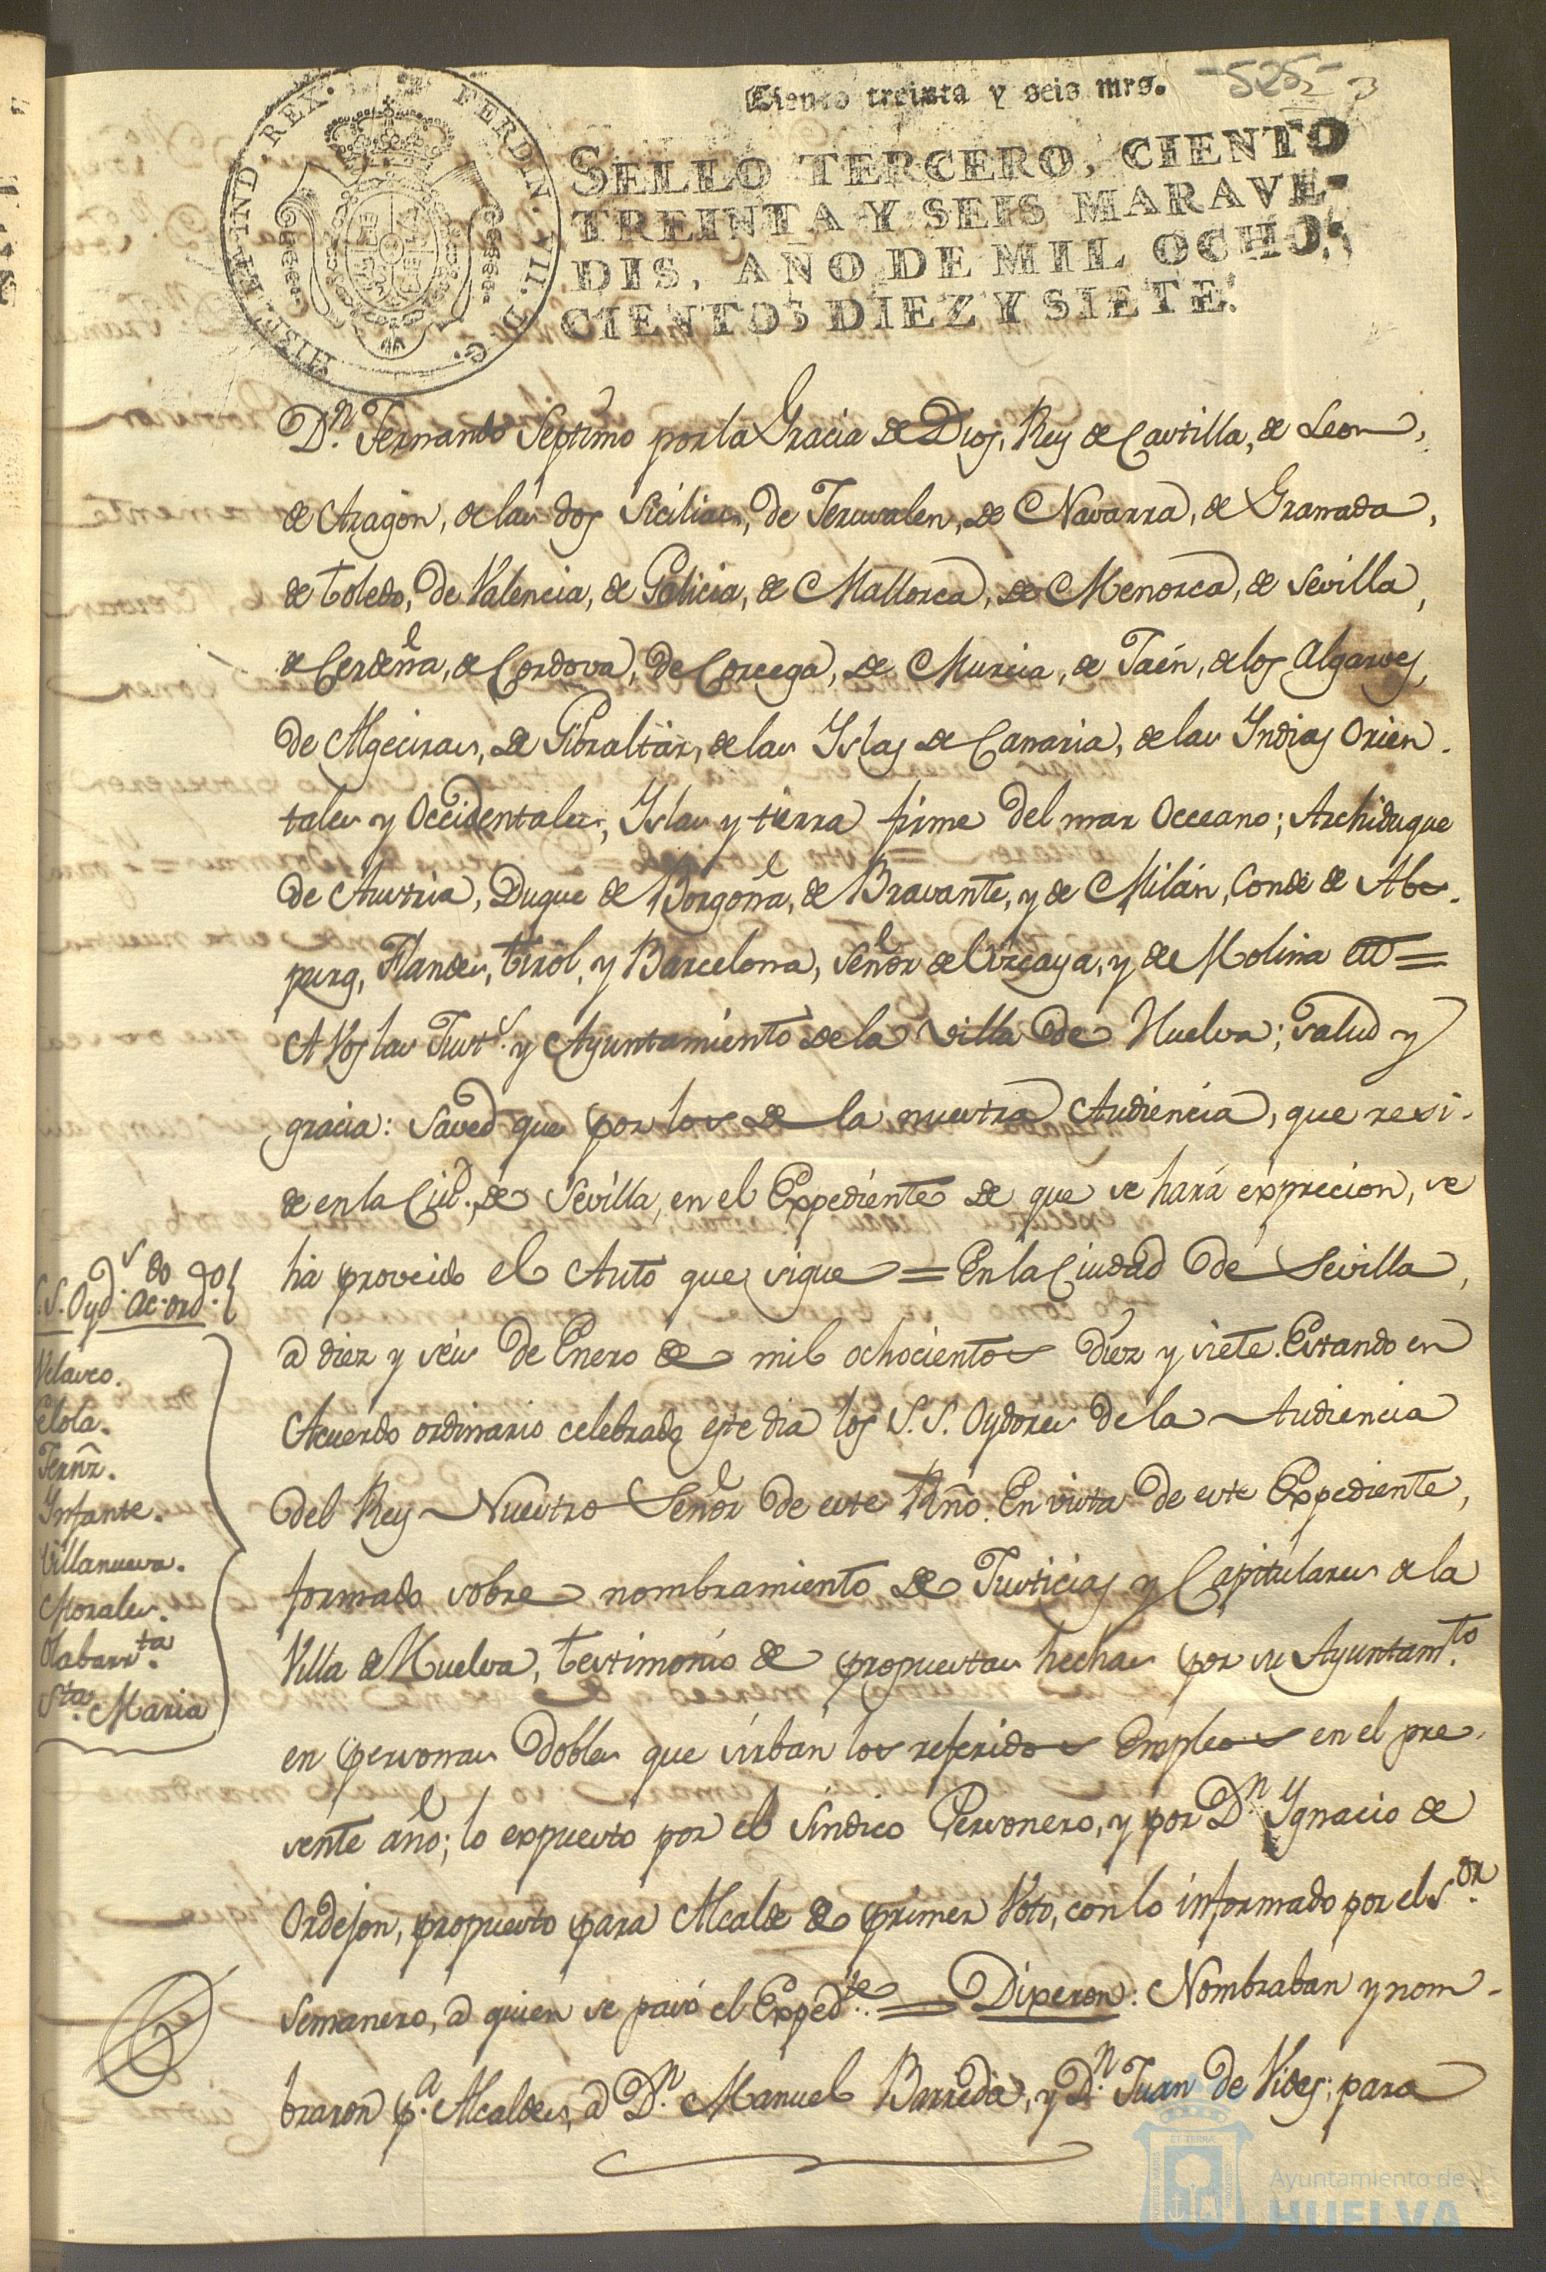 Ciento treinta y seis mrs.
-525- 3
2
HISP. ET IND. REX. FERDIN. VII. D. G.
SELLO TERCERO, CIENTO
TREINTA Y SEIS MARAVE-
DIS, AÑO DE MIL OCHO-
CIENTOS DIEZ Y SIETE.
Dn. Fernando Septimo por la Gracia de Dios, Rey de Castilla, de Leon,
de Aragon, de las dos Sicilias, de Jerusalen, de Navarra, de Granada,
de Toledo, de Valencia, de Galicia, de Mallorca, de Menorca, de Sevilla,
de Cerdeña, de Cordova, de Corcega, de Murcia, de Jaén, de los Algarves,
de Algeciras, de Gibraltar, de las Yslas de Canaria, de las Yndias Orien-
tales y Occidentales, Yslas y tierra firme del mar Occeano; Archiduque
de Austria, Duque de Borgoña, de Bravante, y de Milán, Conde de Abs-
purg, Flandes, Tiról, y Barcelona, Señor de Vizcaya, y de Molina etc=
A Vos las Justs. y Ayuntamiento de la villa de Huelva; salud y
gracia: Saved que por los de la nuestra Audiencia, que resi-
de en la Ciud. de Sevilla, en el Expediente de que se hará exprecion, se
ha proveido el Auto que sigue = En la Ciudad de Sevilla,
a diez y séis de Enero de mil ochocientos diez y siete. Estando en
Acuerdo ordinario celebrado este dia los S.S. Oydores de la Audiencia
del Rey Nuestro Señor de este Rño. En vista de este Expediente,
formado sobre nombramiento de Justicias y Capitulares de la
Villa de Huelva, testimonio de propuestas hechas por su Ayuntamto.
en personas dobles que sirban los referidos Empleos en el pre-
sente año; lo expuesto por el Sindico Personero, y por Dn. Ygnacio de
Ordejon, propuesto para Alcalde de primer Voto, con lo informado por el Sor.
Semanero, a quien se pasó el Expedte. = Dixeron: Nombraban y nom-
braron pa. Alcaldes, a Dn. Manuel Barreda, y Dn. Juan de Vides; para
S.S. Oyds. Acdo. ordo.
Velasco.
Elola.
Fernz.
Ynfante.
Villanueva.
Morales.
Olabarrta.
Sta. Maria
Ayuntamiento de
HUELVA